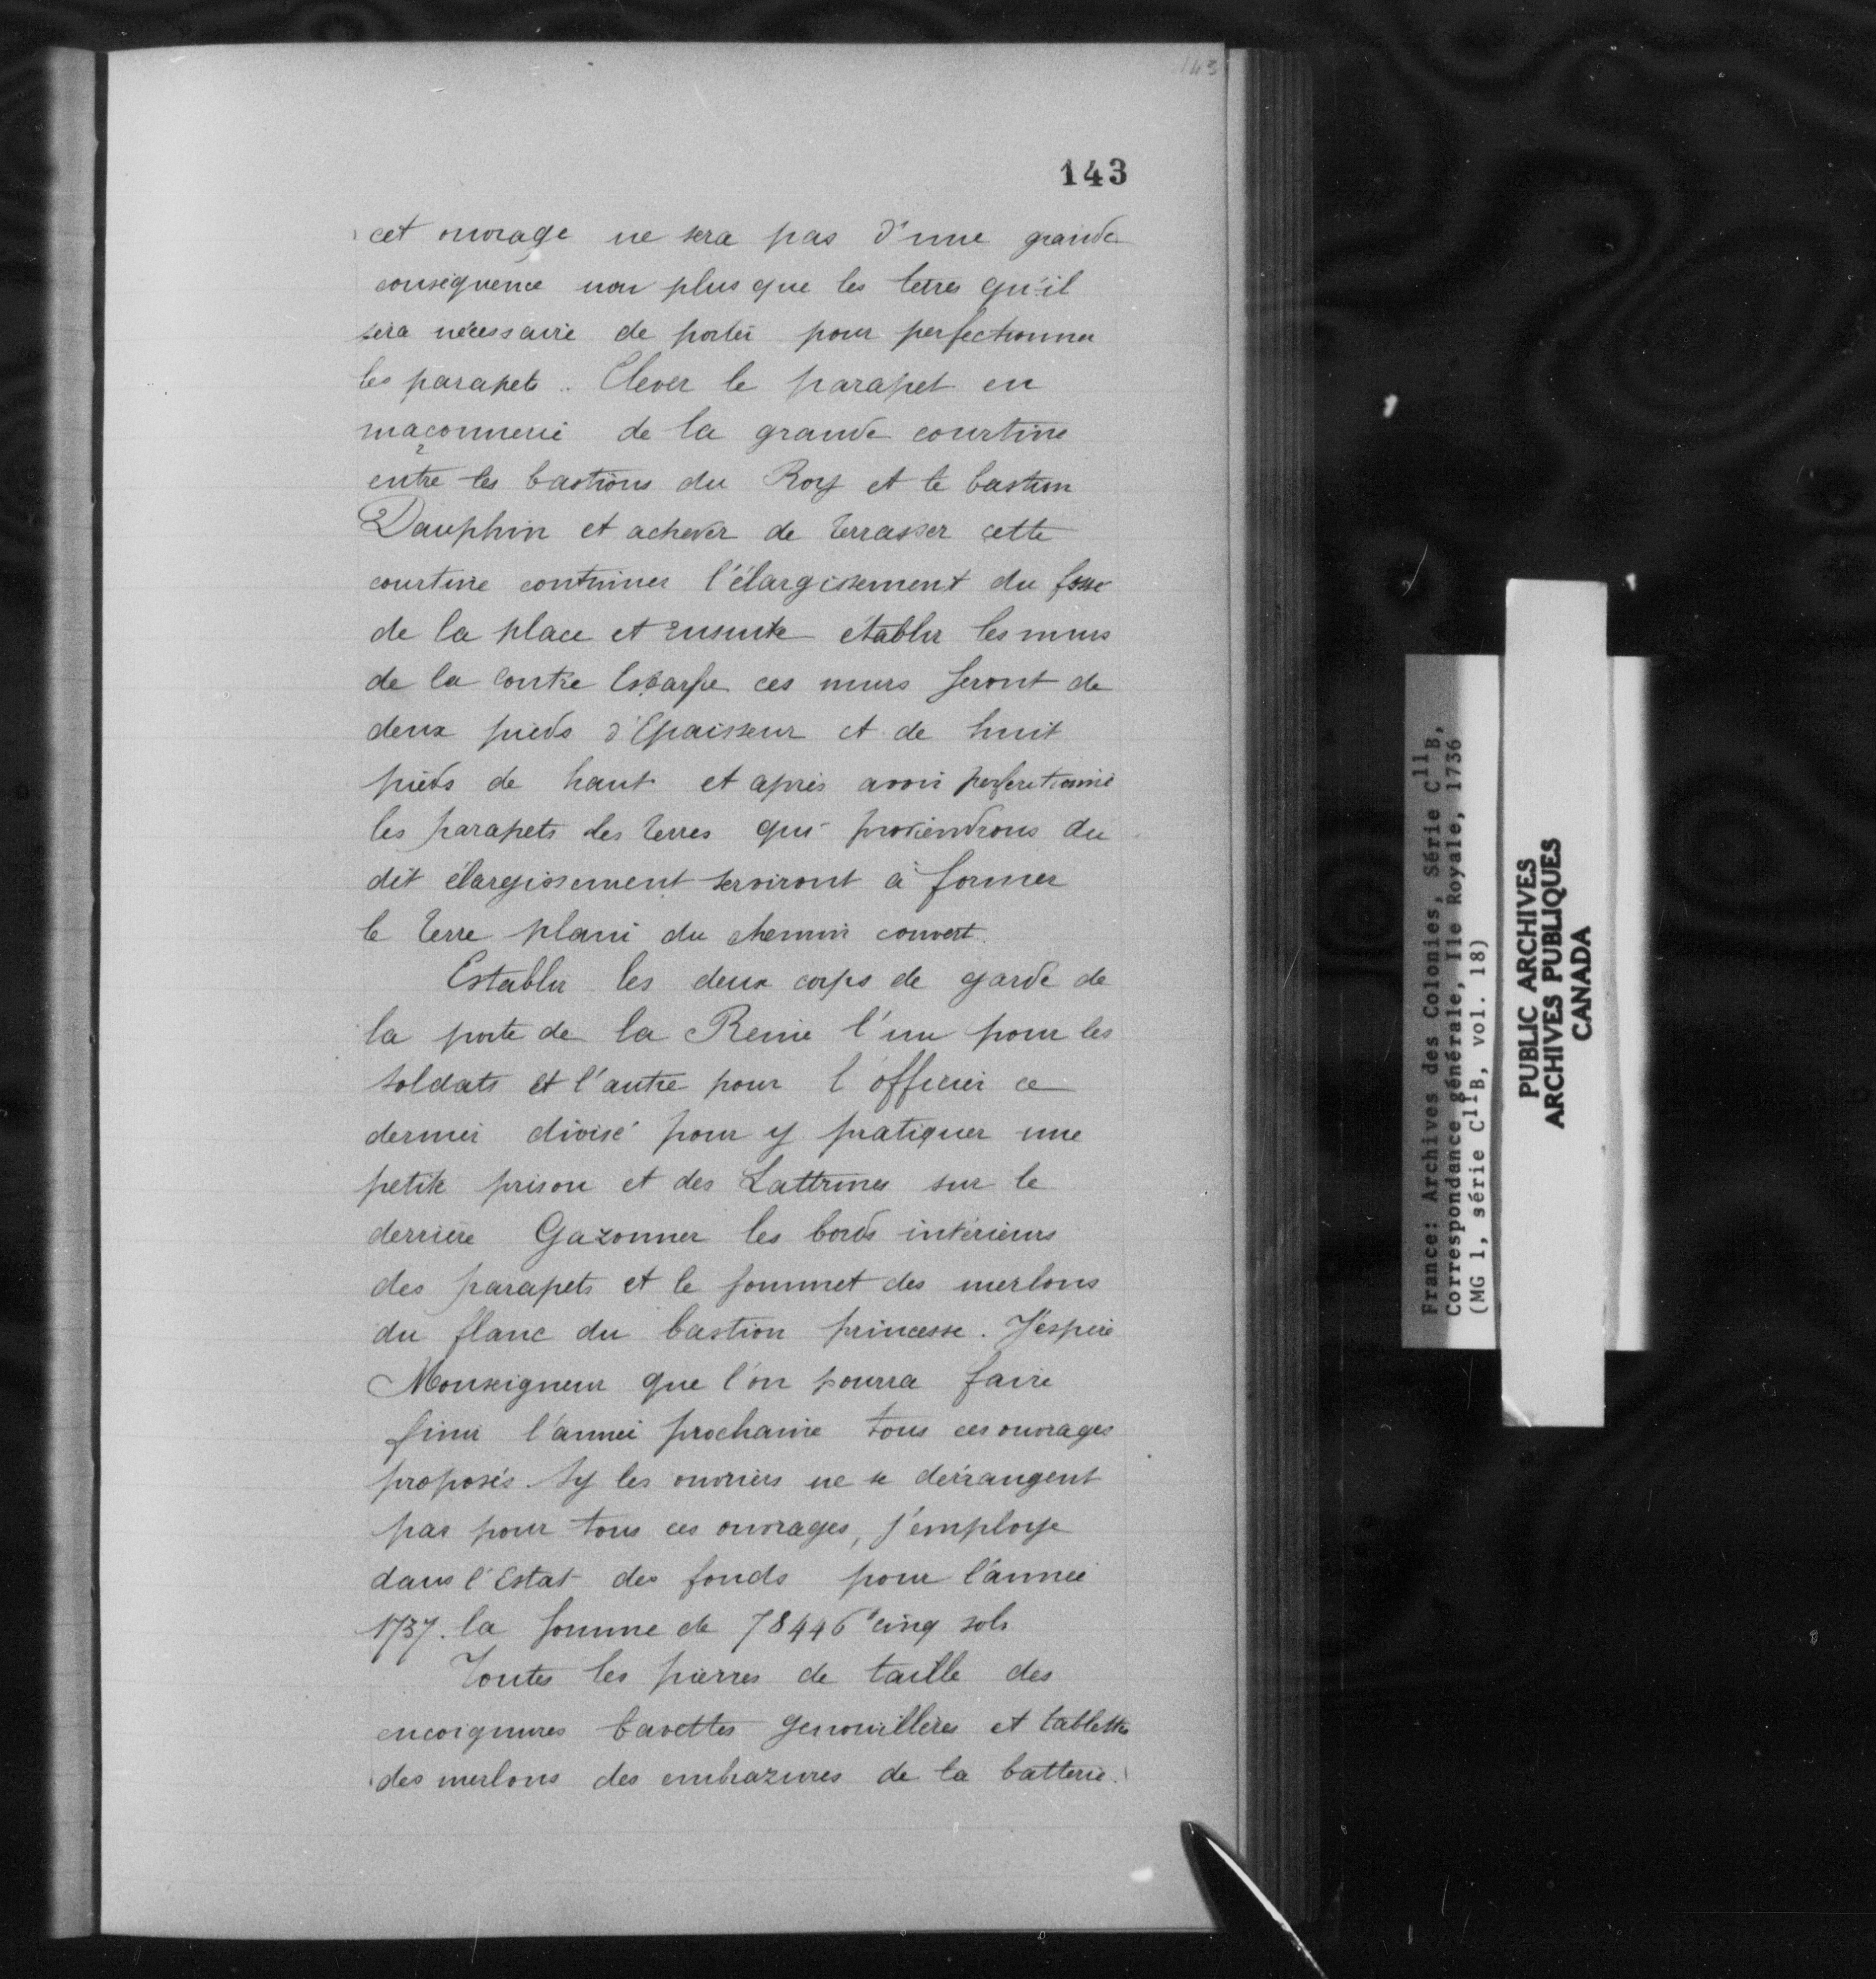 143
143
cet ouvrage ne sera pas d'une grande
conséquence non plus que les terres qu'il
sera nécessaire de porter pour perfectionner
les parapets. Elever le parapet en
maçonnerie de la grande courtine
entre les bastions du Roy et le bastion
Dauphin et achever de terrasser cette
courtine continuer l'élargissement du fossé
de la place et ensuite établir les murs
de la Contre Escarpe ces murs seront de
deux pieds d'Epaisseur et de huit
pieds de haut et après avoir perfectionné
les parapets les terres qui proviendrons du
dit élargissement serviront à former
le terre plain du chemin couvert.
Establir les deux corps de garde de
la porte de la Reine l'un pour les
soldats et l'autre pour l'officier ce
dernier divisé pour y pratiquer une
petite prison et des Lattrines sur le
derrière Gazonner les bords intérieurs
des parapets et le sommet des merlons
du flanc du bastion princesse. J'espère
Monseigneur que l'on pourra faire
finir l'année prochaine tous ces ouvrages
proposés sy les ouvriers ne se dérrangent
pas pour tous ces ouvrages, j'employe
dans l'Estat des fonds pour l'année
1737. la somme de 78446# cinq sols
Toutes les pierres de taille des
encoignures bavettes genouillères et tablettes
des merlons des embrazures de la batterie.
France: Archives des Colonies, Série C11B,
Correspondance générale, Ile Royale, 1736
(MG 1, série C11B, vol. 18)
PUBLIC ARCHIVES
ARCHIVES PUBLIQUES
CANADA